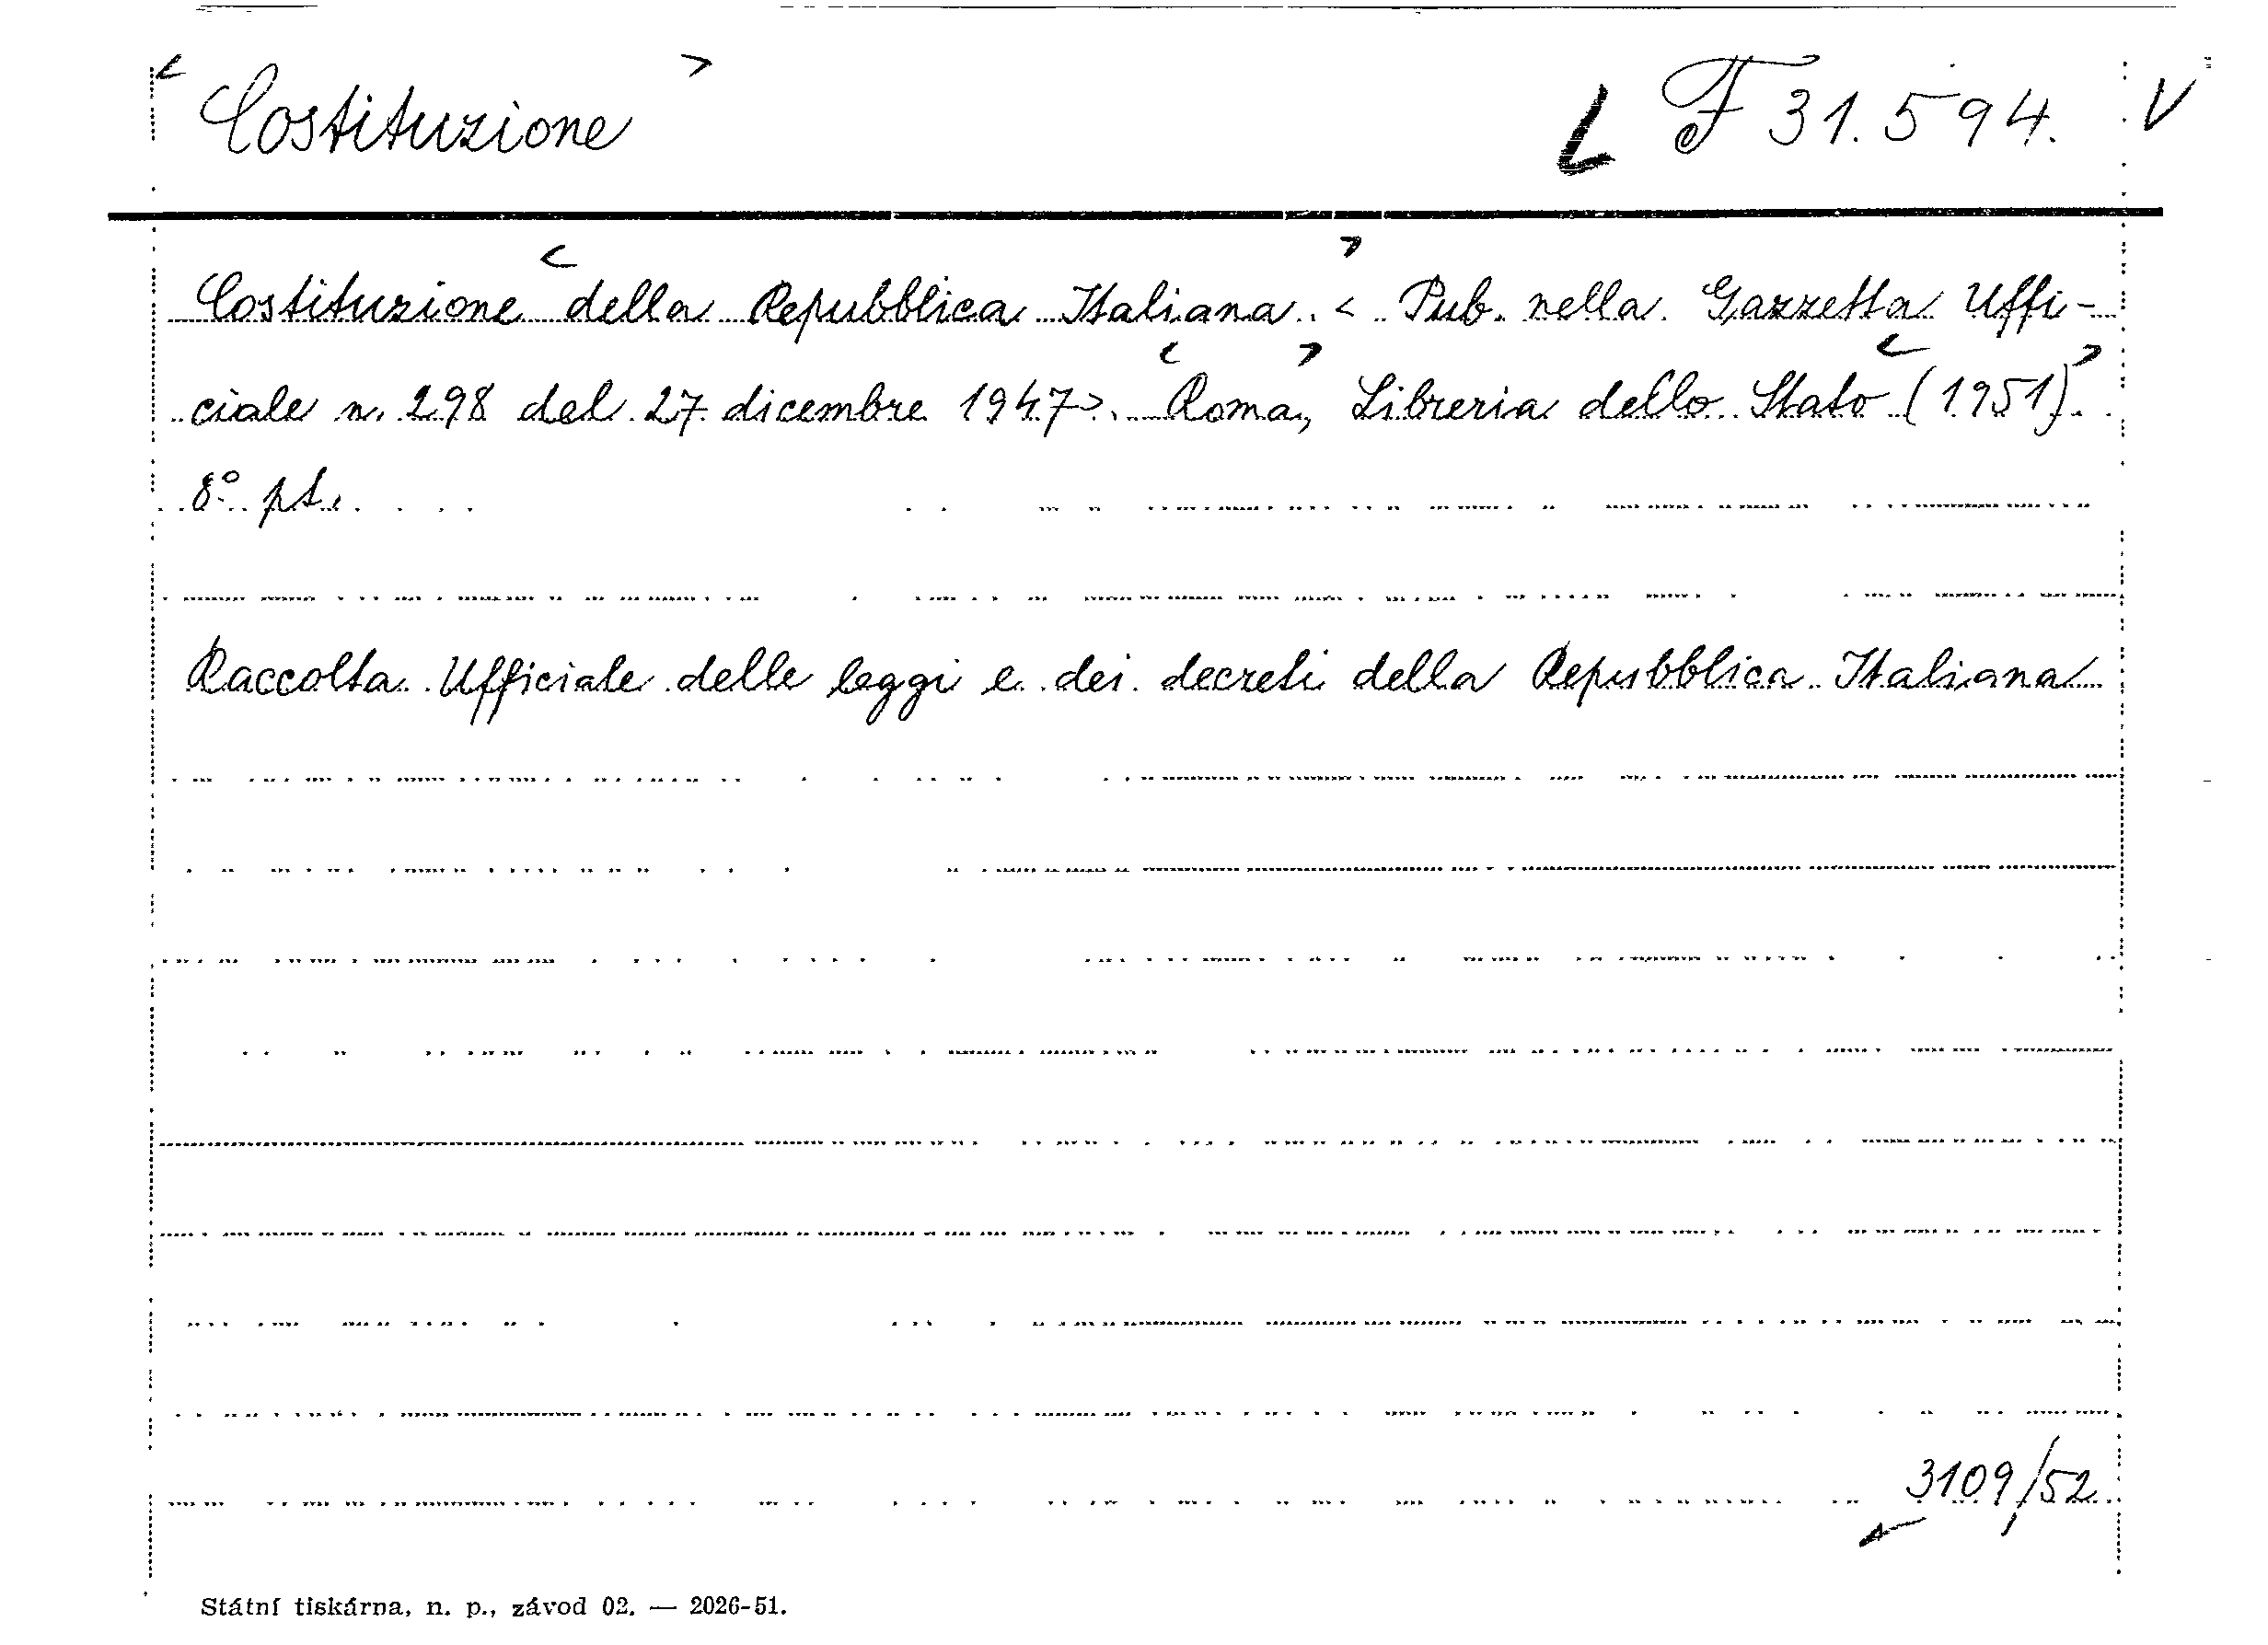 Costituzione F 31.594. V
Costituzione della Repubblica Italiana. < Pub. nella Gazzetta Uffi-
ciale n. 298 del 27 dicembre 1947>. Roma, Libreria dello Stato (1951).
8° pt.
Raccolta Ufficiale delle leggi e dei decreti della Repubblica Italiana
3109/52
Státní tiskárna, n. p., závod 02. — 2026-51.